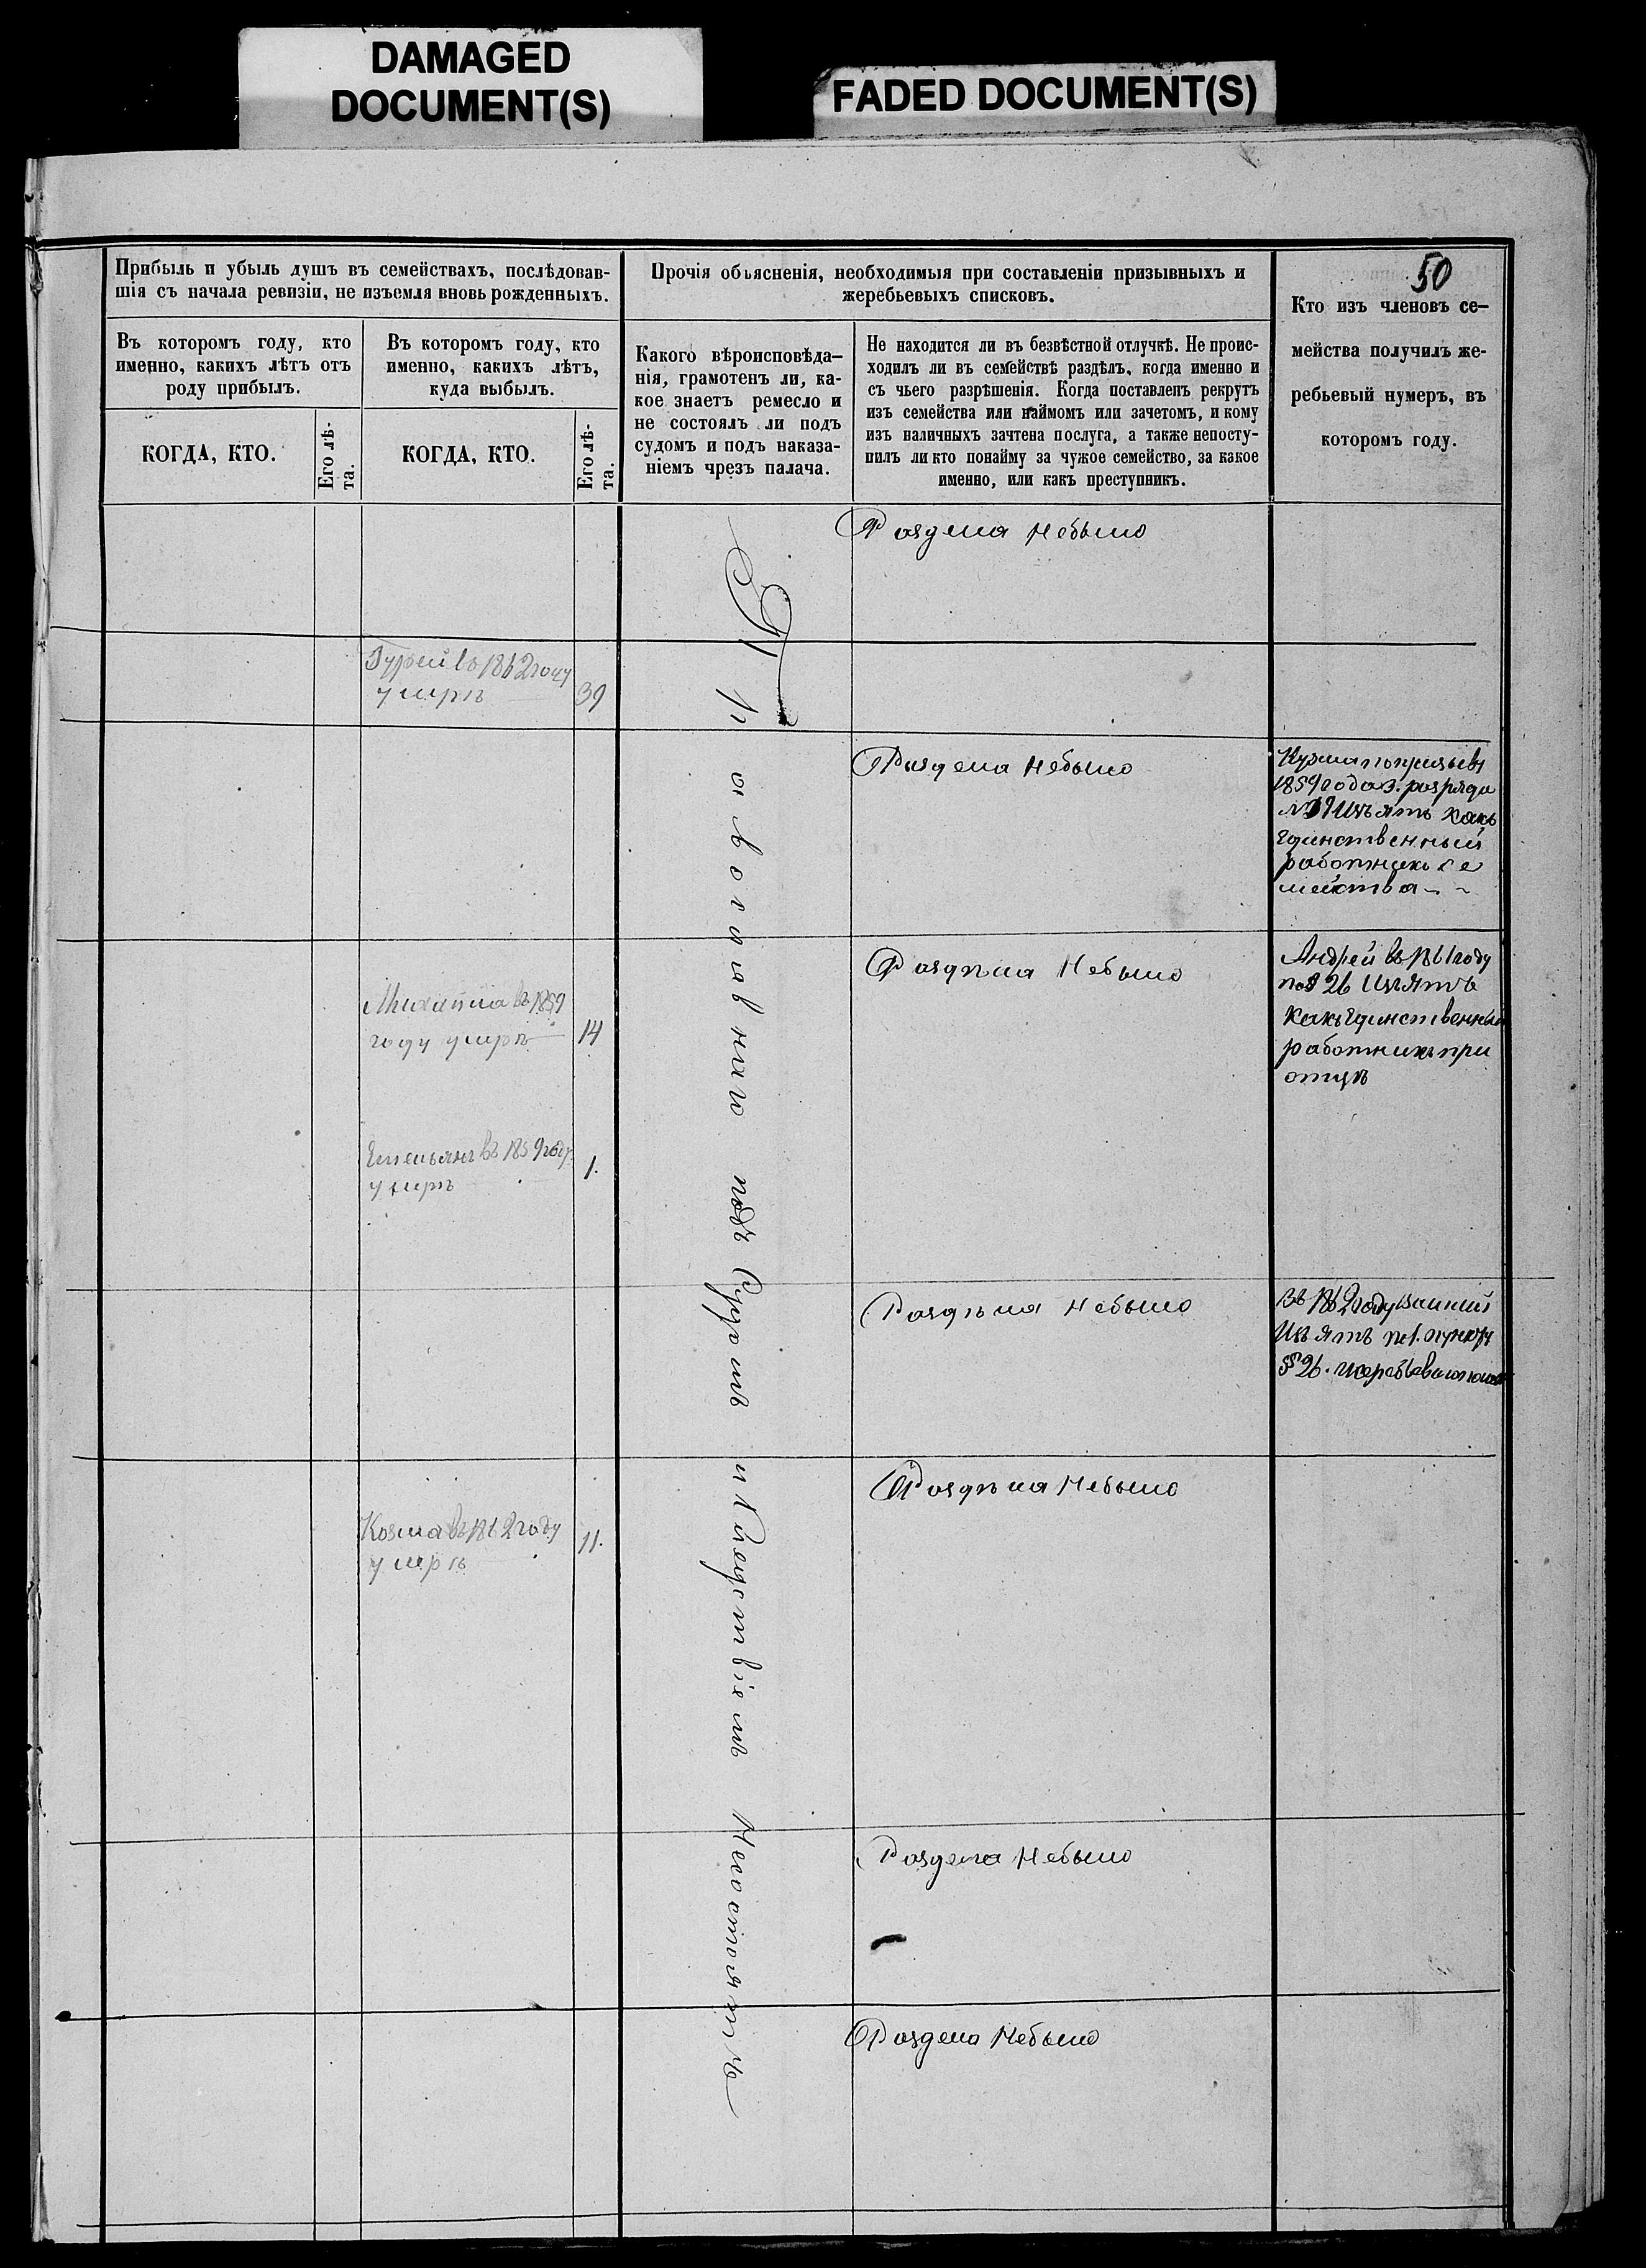 DAMAGED
DOCUMENT(S)
FADED DOCUMENT(S)
50
Прибыль и убыль душъ въ семействахъ, послѣдовав-
шія съ начала ревизіи, не изъемля вновь рожденныхъ.
Прочія объясненія, необходимыя при составленіи призывныхъ и
жеребьевыхъ списковъ.
Кто изъ членовъ се-
мейства получилъ же-
ребьевый нумеръ, въ
которомъ году.
Въ которомъ году, кто
именно, какихъ лѣтъ отъ
роду прибылъ.
Въ которомъ году, кто
именно, какихъ лѣтъ,
куда выбылъ.
Какого вѣроисповѣда-
нія, грамотенъ ли, ка-
кое знаетъ ремесло и
не состоялъ ли подъ
судомъ и подъ наказа-
ніемъ чрезъ палача.
Не находится ли въ безвѣстной отлучкѣ. Не проис-
ходилъ ли въ семействѣ раздѣлъ, когда именно и
съ чьего разрѣшенія. Когда поставленъ рекрутъ
изъ семейства или наймомъ или зачетомъ, и кому
изъ наличныхъ зачтена послуга, а также непосту-
пилъ ли кто понайму за чужое семейство, за какое
именно, или какъ преступникъ.
КОГДА, КТО.
Его лѣ-
та.
КОГДА, КТО.
Его лѣ-
та.
Раздела Небыло
Гурей въ 1862 году
умеръ 39
Раздела Небыло
Кузма
1859 года 3. разряда
Изъятъ какъ
Единственный
работникъ се
мейства
Раздѣла Небыло
Андрей въ 1861 году
по § 26 Изъятъ
какъ Единственный
работникъ при
отцѣ
Михайла въ 1859
году умеръ 14
Емельянъ въ 1859 году
умеръ 1.
Православнаго подъ Судомъ и Следствіемъ Несостоятъ
Раздѣла Небыло
Въ 1862 году
Изъятъ по 1. пункту
§ 26.
Раздѣла Небыло
Козма въ 1862 году
умеръ 11.
Раздела Небыло
Раздела Небыло